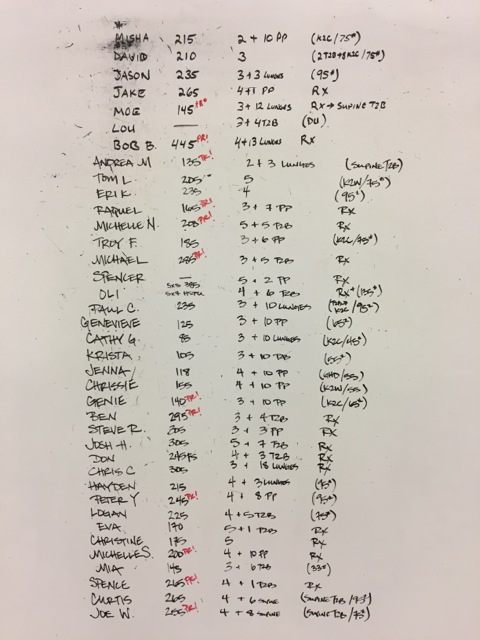 MISHA 215 2 + 10 PP (K2C/75#)
DAVID 210 3 (2T2B+8K2C/75#)
JASON 235 3 + 3 LUNGES (95#)
JAKE 265 4+1 PP RX
MOE 145 PR! 3 + 12 LUNGES RX → SUPINE T2B
LOU — 3 + 4T2B (DU)
BOB B. 445 PR! 4+13 LUNGES RX
ANDREA M 135 PR! 2 + 3 LUNGES (SUPINE T2B)
TOM L. 205 5 (K2W/75#)
ERIK 235 4 (95#)
RAQUEL 165 PR! 3 + 7 PP RX
MICHELLE N. 208 PR! 5 + 5 T2B RX
TROY F. 185 3 + 6 PP (K2C/75#)
MICHAEL 285 PR! 3 + 5 T2B RX
SPENCER — 5 + 2 PP RX
OLI 5x3 385 4 + 6 T2B RX+ (135#)
PAUL C. 235 3 + 10 LUNGES K2C/95#)
GENEVIEVE 125 3 + 10 PP (65#)
CATHY G. 85 3 + 10 LUNGES (K2C/45#)
KRISTA 105 3 + 10 (55#)
JENNA 118 4 + 10 PP
CHRISSIE 155 4 + 10 PP (K2W/55)
GENIE 140 PR! 3 + 10 PP (K2C/65#)
BEN 295 PR! 3 + 4T2B RX
STEVE R. 205 3 + 3 PP RX
JOSH H. 305 5 + 7 T2B RX
DON 4 + 3 T2B RX
CHRIS C 305 3 + 18 LUNGES RX
HAYDEN 215 4 + 3 LUNGES (95#)
PETER Y 245 PR! 4 + 8 PP (95#)
LOGAN 225 4 + 5 T2B (75#)
EVA 170 5 + 1 T2B RX
CHRISTINE 175 5 RX
MICHELLE S. 200 PR! 4 + 10 PP RX
MIA 145 3 + 6 T2B (33#)
SPENCE 265 PR! 4 + 1 T2B RX
CURTIS 265 4 + 6 SUPINE (SUPINE T2B/75#)
JOE W. 255 PR! 4 + 8 SUPINE (SUPINE T2B/75#)